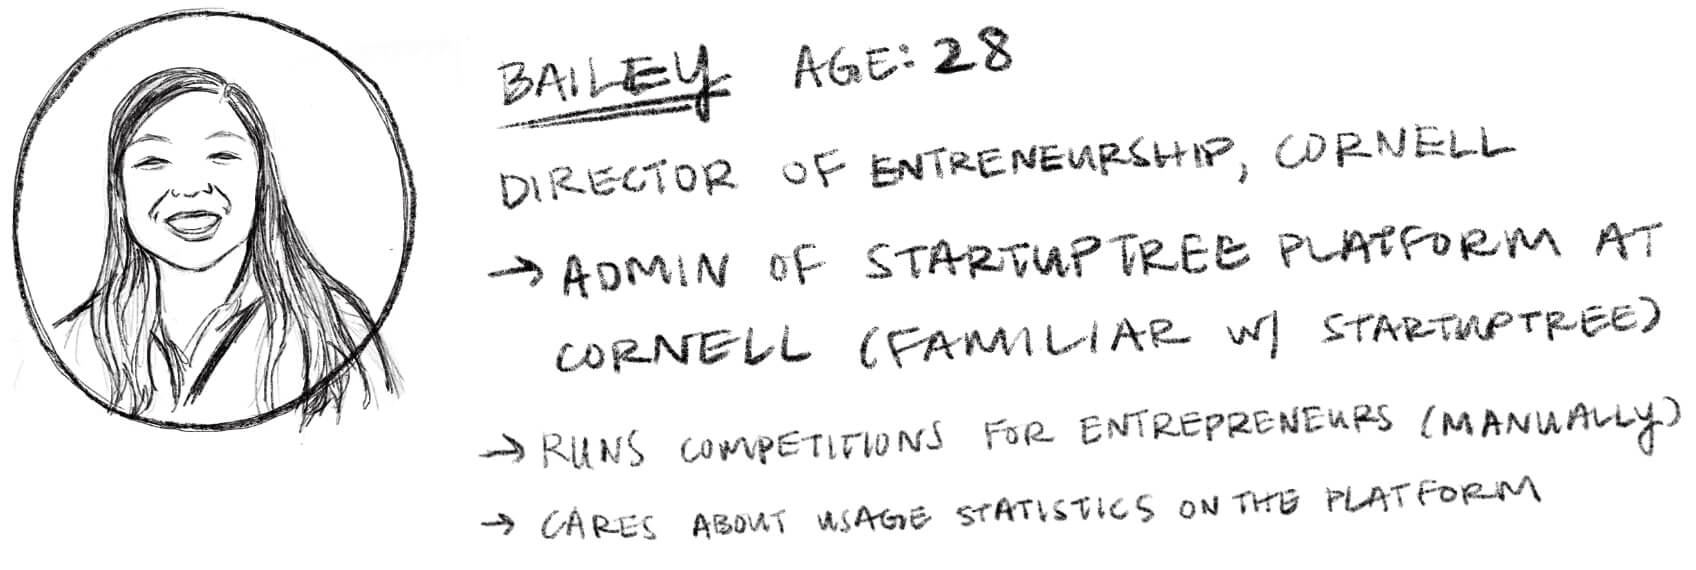 BAILEY AGE: 28
DIRECTOR OF ENTRENEURSHIP, CORNELL
→ ADMIN OF STARTUPTREE PLATFORM AT
CORNELL (FAMILIAR W/ STARTUPTREE)
→ RUNS COMPETITIONS FOR ENTREPRENEURS (MANUALLY)
→ CARES ABOUT USAGE STATISTICS ON THE PLATFORM